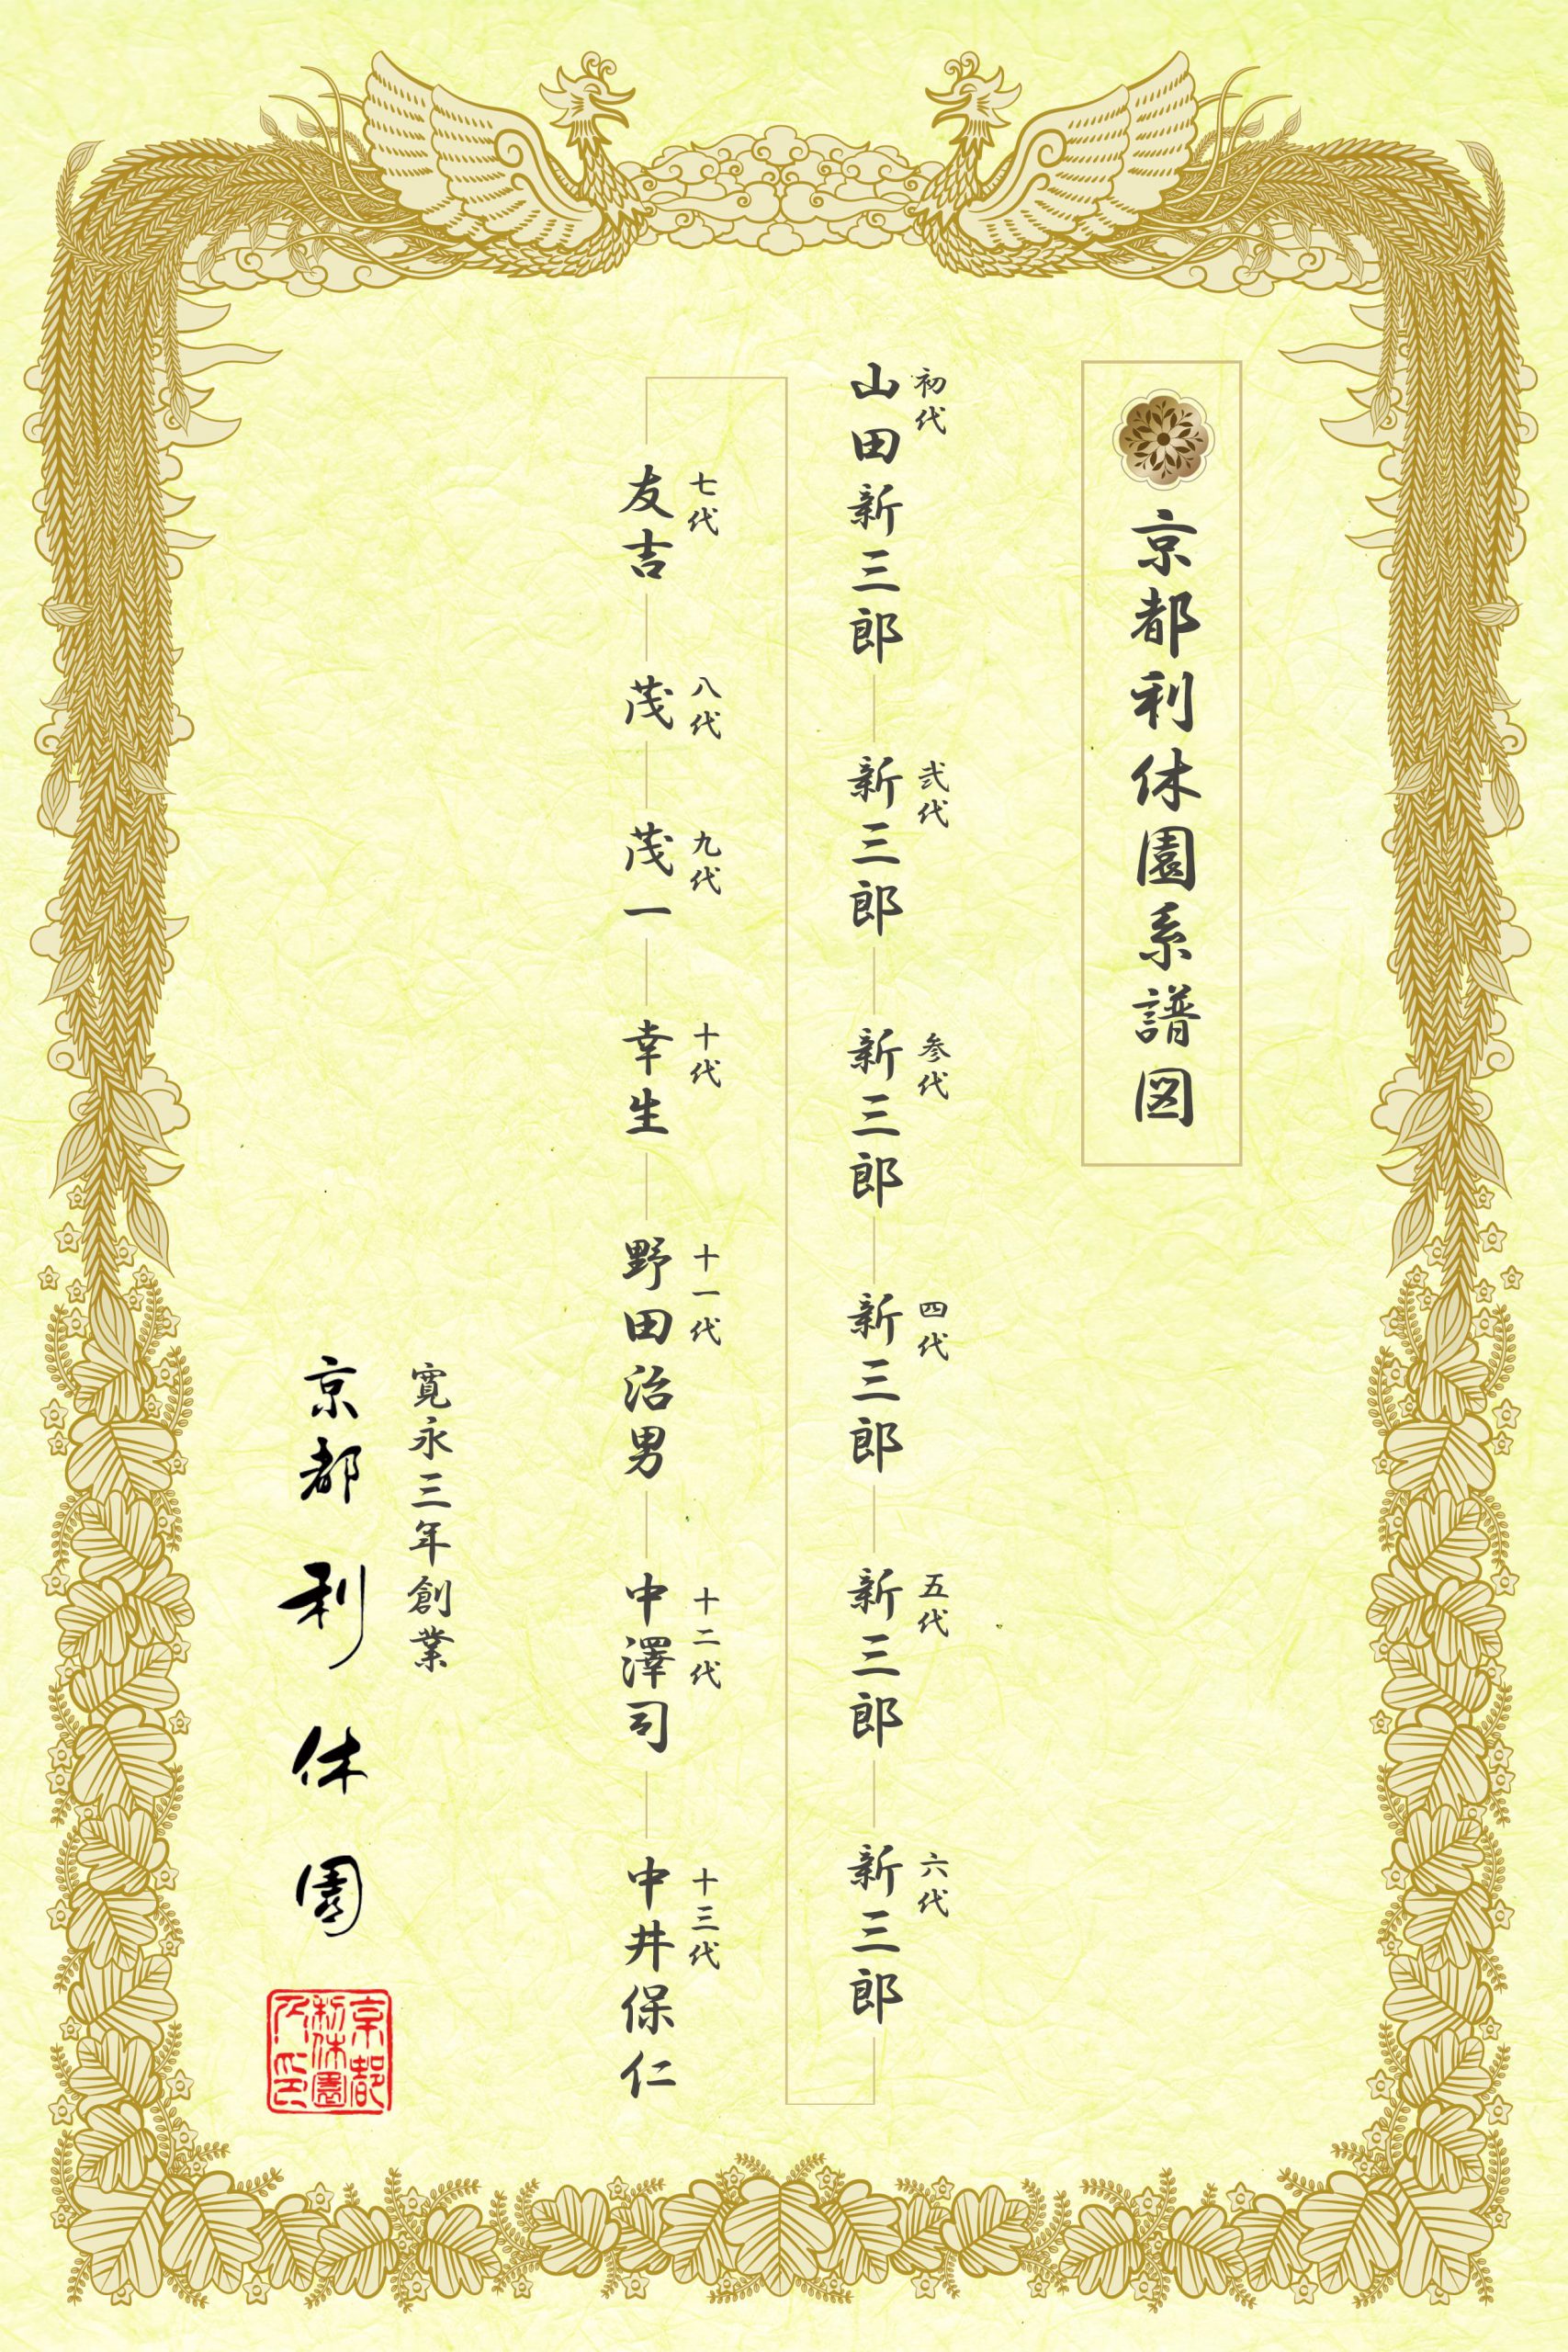 京都利休園系譜図
初代
山田新三郎
弐代
新三郎
参代
新三郎
四代
新三郎
五代
新三郎
六代
新三郎
七代
友吉
八代
茂
九代
茂一
十代
幸生
十一代
野田治男
十二代
中澤司
十三代
中井保仁
寛永三年創業
京都利休園
京都
利休園
之印